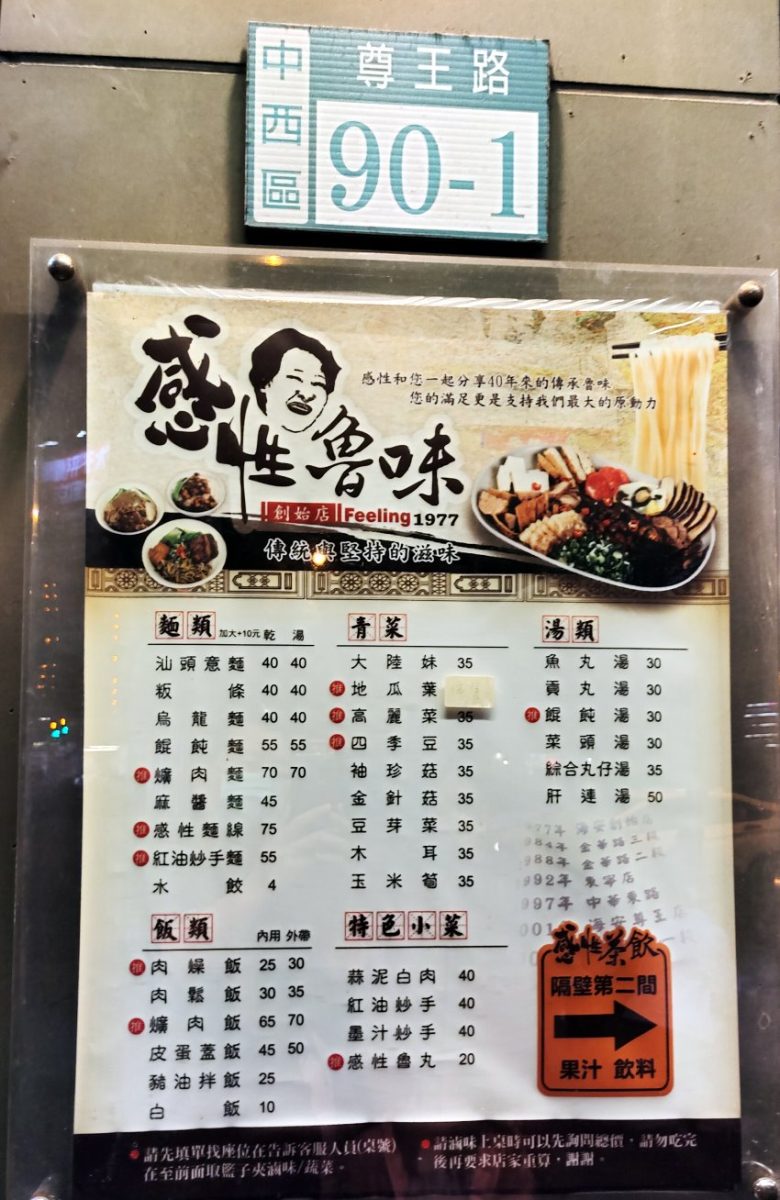 中西區
尊王路
90-1
感性魯味
感性和您一起分享40年來的傳承魯味
您的滿足更是支持我們最大的原動力
創始店 Feeling 1977
傳統與堅持的滋味
麵類 加大+10元 乾 湯
汕頭意麵 40 40
粄條 40 40
烏龍麵 40 40
餛飩麵 55 55
推 爌肉麵 70 70
麻醬麵 45
推 感性麵線 75
推 紅油炒手麵 55
水餃 4
飯類 內用 外帶
推 肉燥飯 25 30
肉鬆飯 30 35
推 爌肉飯 65 70
皮蛋蓋飯 45 50
豬油拌飯 25
白飯 10
青菜
大陸妹 35
推 地瓜葉
推 高麗菜 35
推 四季豆 35
袖珍菇 35
金針菇 35
豆芽菜 35
木耳 35
玉米筍 35
特色小菜
蒜泥白肉 40
紅油炒手 40
墨汁炒手 40
推 感性魯丸 20
湯類
魚丸湯 30
貢丸湯 30
推 餛飩湯 30
菜頭湯 30
綜合丸仔湯 35
肝連湯 50
977年 海安創始店
984年 金華路三段
988年 金華路二段
992年 東寧店
997年 中華東路
001 海安尊王店
感性茶飲
隔壁第二間
果汁 飲料
請先填單找座位在告訴客服人員(桌號)
在至前面取籃子夾滷味/蔬菜。
請滷味上桌時可以先詢問總價,請勿吃完
後再要求店家重算,謝謝。